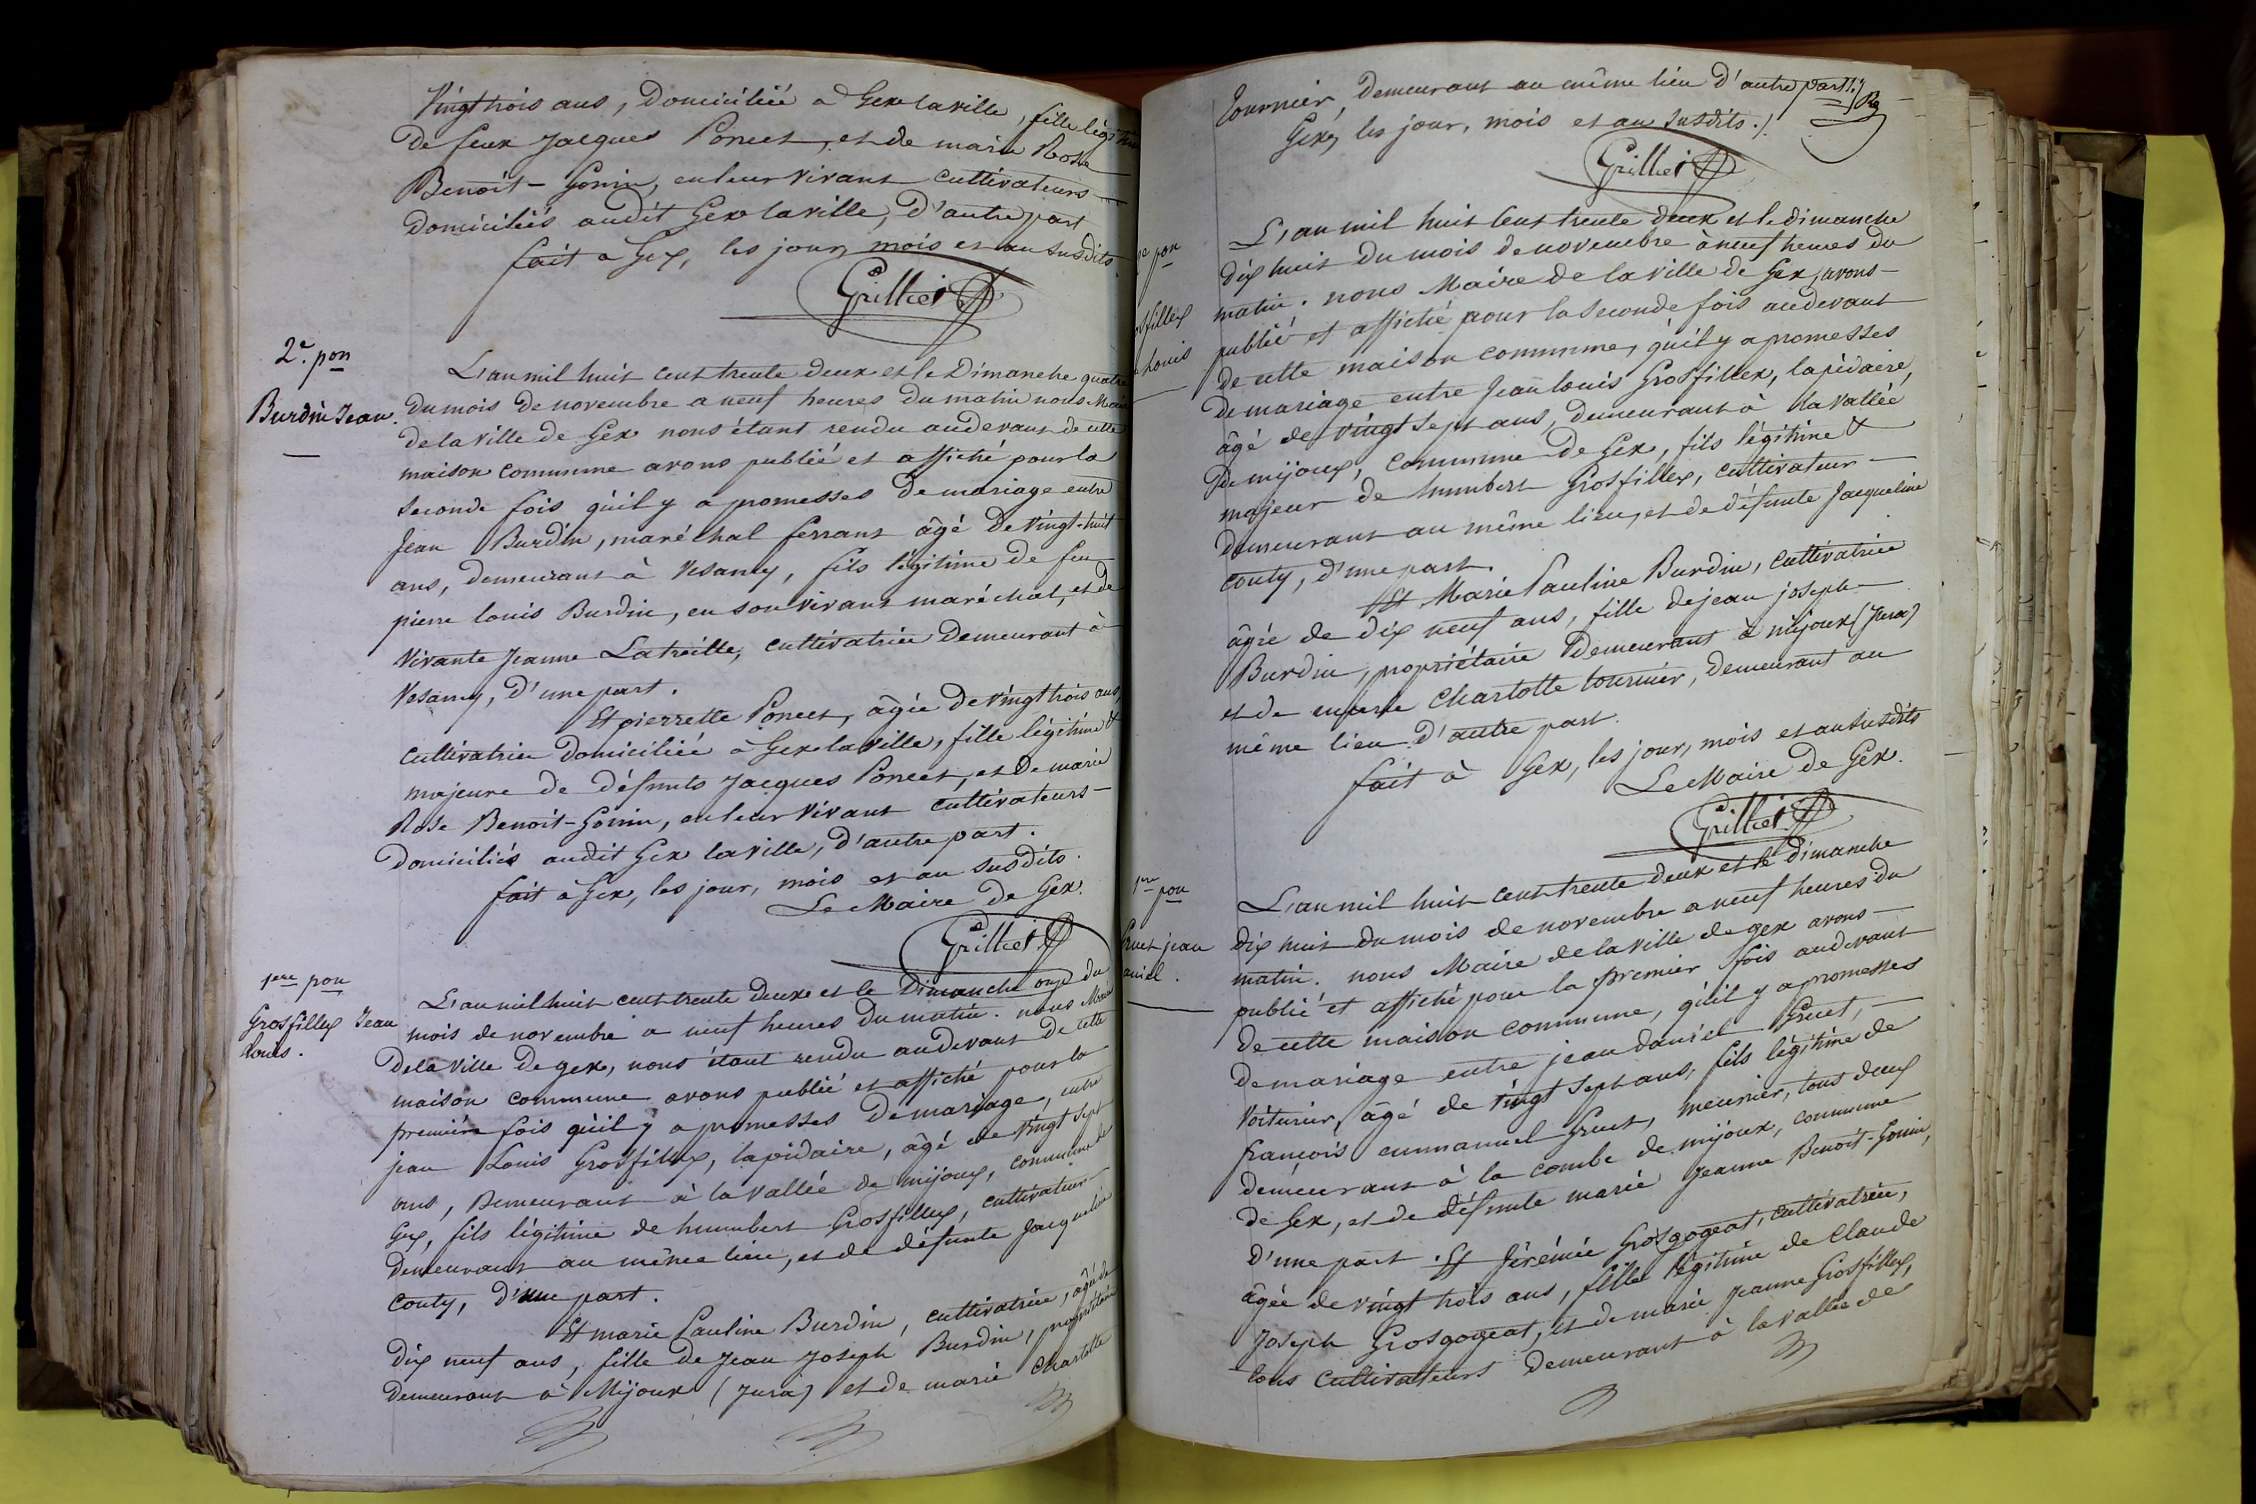 vingt trois ans, Domiciliée à Gex la ville, fille légitime
de feux Jacques Poncet, et de marie Rose
Benoît-Gonin, en leur vivant cultivateurs
domiciliés audit Gex la ville, d'autre part
fait à Gex, les jour, mois et an susdits.
Grilliet
2e. pon
Burdin Jean.
L'an mil huit cent trente deux et le Dimanche quatre
du mois de novembre a neuf heures du matin nous Maire
de la ville de Gex nous étant rendu audevant de cette
maison commune avons publié et affiché pour la
seconde fois qu'il y a promesses de mariage entre
Jean Burdin, maréchal ferrant âgé de vingt-huit
ans, demeurant à Vesancy, fils légitime de feu
pierre louis Burdin, en son vivant maréchal, et de
vivante Jeanne Latreille, cultivatrice demeurant à
Vesancy, d'une part.
Et pierrette Poncet, âgée de vingt trois ans,
cultivatrice domiciliée à Gex la ville, fille légitime &
majeure de défunts Jacques Poncet, et de marie
Rose Benoit-Gonin, en leur vivant cultivateurs
domiciliés audit Gex la ville, d'autre part.
fait à Gex, les jour, mois et an susdits.
Le Maire de Gex.
Grilliet
1ere pon
Grosfillex Jean
Louis.
L'an mil huit cent trente deux et le Dimanche onze du
mois de novembre a neuf heures du matin. nous Maire
de la ville de gex, nous étant rendu audevant de cette
maison commune avons publié et affiché pour la
première fois qu'il y a promesses de mariage, entre
jean Louis Grosfillex, lapidaire, âgé de vingt sept
ans, Demeurant à la vallée de mijoux, commune de
Gex, fils légitime de humbert Grosfillex, cultivateur
demeurant au même lieu, et de défunte Jacqueline
Couty, d'une part.
Et marie Pauline Burdin, cultivatrice, âgée de
dix neuf ans, fille de Jean Joseph Burdin, propriétaire
demeurant à Mijoux (Jura) et de marie Charlotte
Tournier, demeurant au même lieu d'autre part.
Gex, les jour, mois et an susdits.
Grilliet
pon
louis
L'an mil huit cent trente deux et le dimanche
dix huit du mois de novembre à neuf heures du
matin. nous Maire de la ville de Gex, avons
publié et affiché pour la seconde fois audevant
de cette maison commune, qu'il y a promesses
de mariage entre Jean louis Grosfillex, lapidaire,
âgé de vingt sept ans, demeurant à la vallée
de mijoux, commune de Gex, fils légitime &
majeur de humbert Grosfillex, cultivateur
demeurant au même lieu, et de défunte Jacqueline
couty, d'une part.
Et Marie Pauline Burdin, cultivatrice
âgée de dix neuf ans, fille de jean joseph
Burdin, propriétaire demeurant à mijoux (Jura)
et de marie Charlotte tournier, demeurant au
même lieu d'autre part.
fait à Gex, les jour, mois et an susdits
Le Maire de Gex.
Grilliet
1re pon
Gruet jean
L'an mil huit cent trente deux et le dimanche
dix huit du mois de novembre a neuf heures du
matin. nous Maire de la ville de gex avons
publié et affiché pour la premier fois audevant
de cette maison commune, qu'il y a promesses
de mariage entre jean daniel Gruet,
voiturier, âgé de vingt sept ans, fils légitime de
françois emmanuel Gruet, meunier, tous deux
demeurant à la combe de mijoux, commune
de Gex, et de défunte marie Jeanne Benoit-Gonin,
d'une part. Et Jérémie Grosgogeat, cultivatrice,
âgée de vingt trois ans, fille légitime de Claude
Joseph Grosgogeat, et de marie Jeanne Grosfillex,
tous cultivateurs demeurant à la vallée de